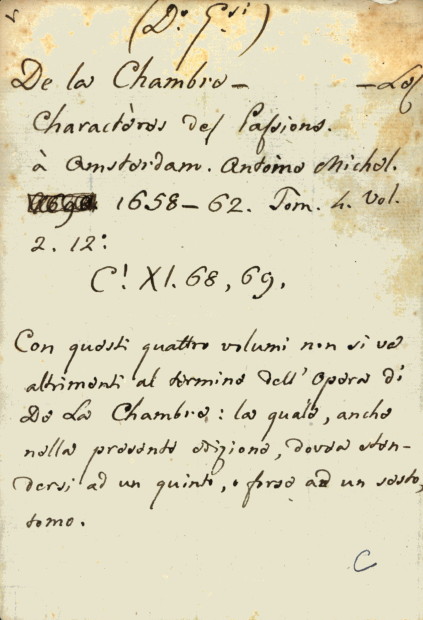 (D.º G.si)
De la Chambre — — Les
Charactères des Passions.
à Amsterdam. Antoine Michel.
1658 — 62. Tom. 4. Vol.
2. 12:
C! XI. 68, 69.
Con questi quattro volumi non si va
altrimenti al termine dell' Opera di
De La Chambre: la quale, anche
nella presente edizione, dovea sten-
dersi ad un quinto, o forse ad un sesto,
tomo.
C